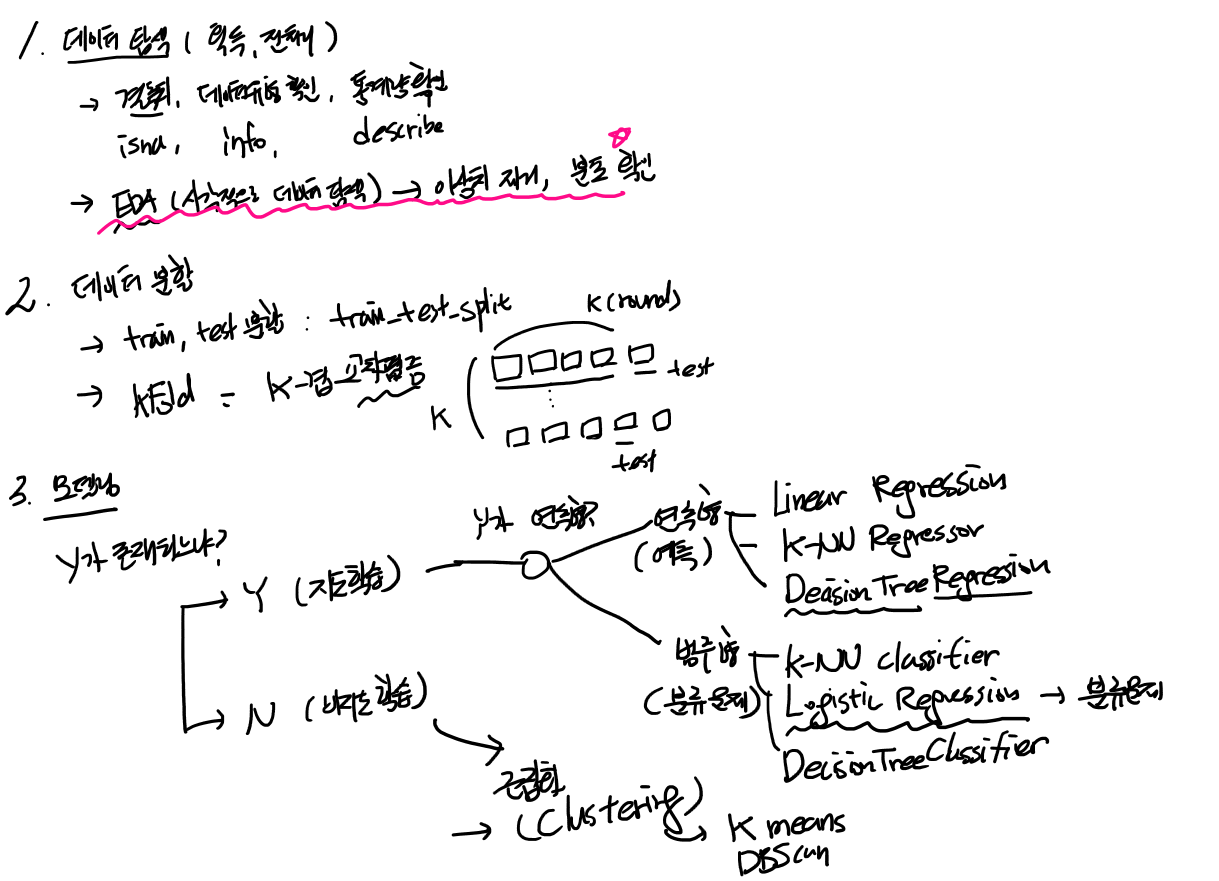 1. 데이터 탐색 ( 획득, 전처리 )
→ 결측치, 데이터유형 확인, 통계량 확인
isna, info, describe
→ EDA (시각적으로 데이터 탐색) → 이상치 처리, 분포 확인
2. 데이터 분할
→ train, test 분할 : train_test_split
K(round)
test
→ KFold = K-겹 교차검증
K
test
3. 모델링
Y가 존재하느냐?
Y (지도학습)
Y가 연속형?
연속형
(예측)
Linear Regression
K-NN Regressor
DecisionTree Regression
범주형
(분류문제)
K-NN classifier
Logistic Regression → 분류문제
DecisionTree Classifier
N (비지도학습)
군집화
→ (Clustering)
→ K means
DBScan